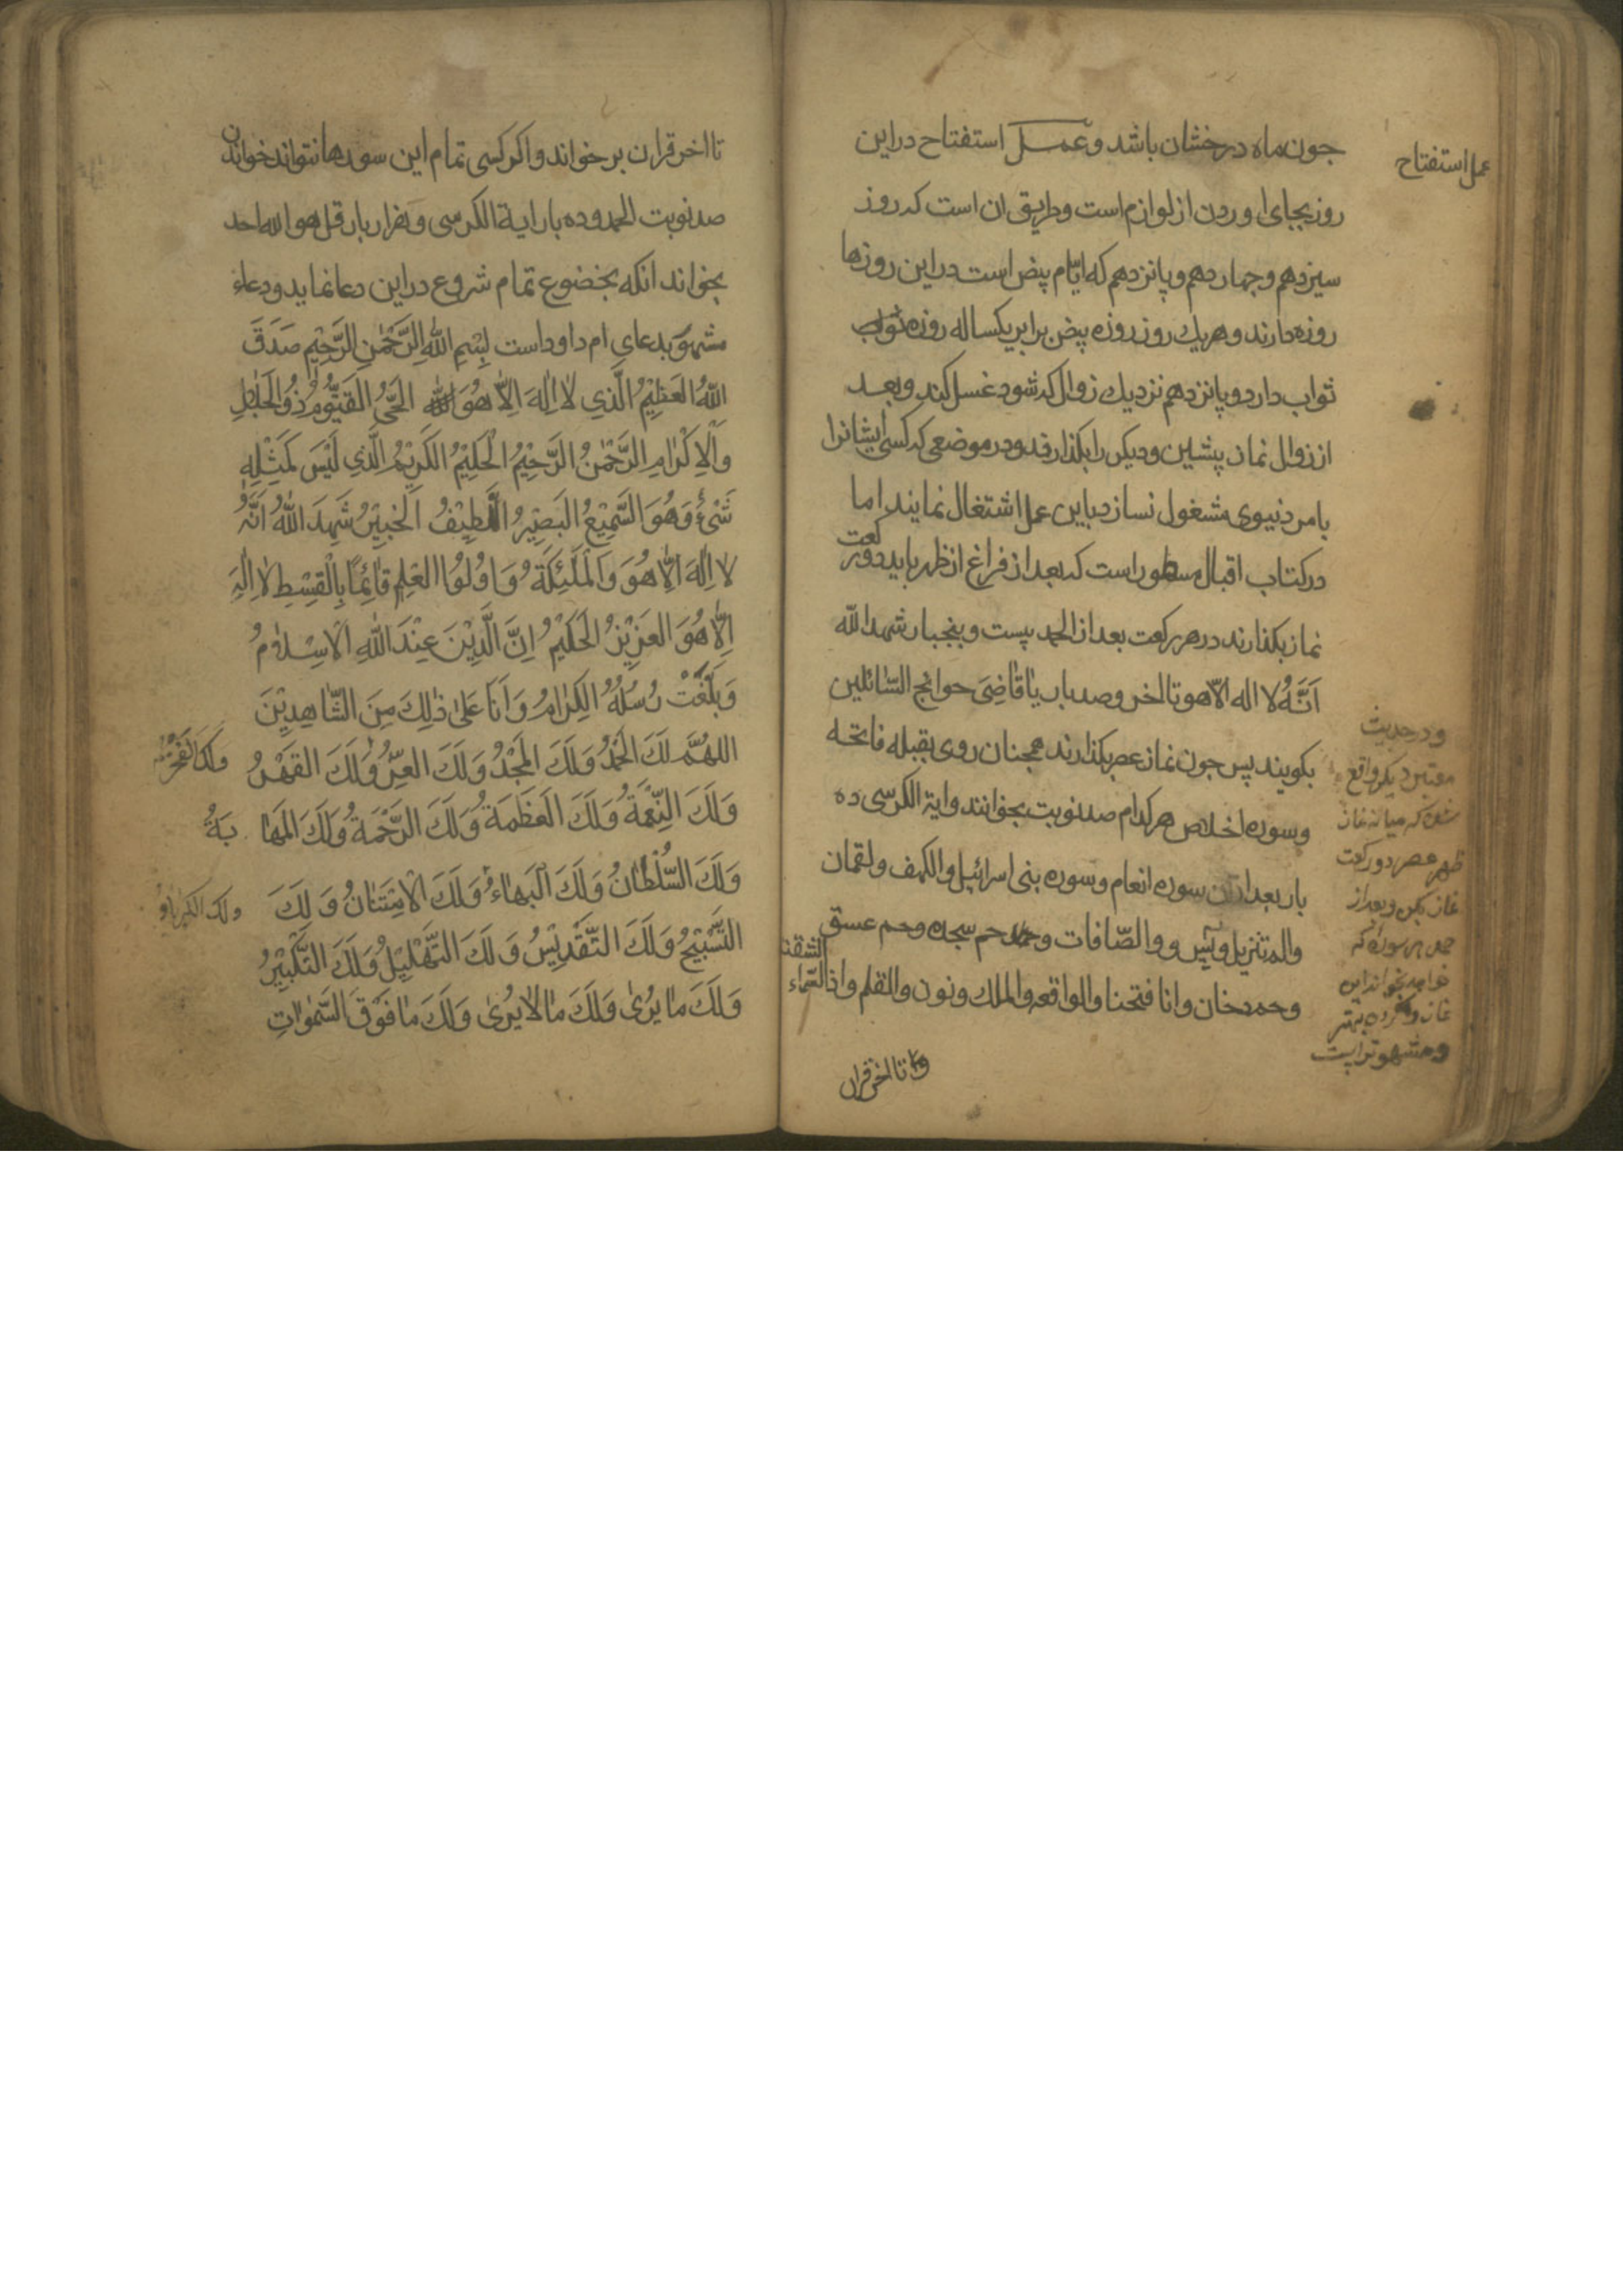 عمل استفتاح
جون ماه درخشان باشد و عمل استفتاح دراین
روز بجای اوردن از لوازم است وطریق ان است که روز
سیزدهم وجهاردهم و پانزدهم که ایّام بیض است دراین روزها
روزه دارند و هر یك روز روزه بیض برابر یکساله روزه
ثواب دارد و پانزدهم نزدیك زوال که شود غسل کند وبعد
از زوال نماز پیشین ودیکر را بکذارند ودر موضعی که کسی ایشانرا
بامر دنیوی مشغول نسازد باین عمل اشتغال نمایند اما
درکتاب اقبال مسطور است که بعد از فراغ از ظهر باید دو رکعت
نماز بکذارند در هر رکعت بعد از الحمد بیست و پنجبار شهد الله
اَنَّهُ لا اله الاّ هو تا اخر وصد بار یا قاضِیَ حوائج السّائلین
بکویند پس جون نماز عصر بکذارند همجنان روی بقبله فاتحه
وسوره اخلاص هرکدام صد نوبت بخوانند وایة الکرسی ده
بار بعد ازان سوره انعام وسوره بنی اسرائیل والکهف ولقمان
والم تنزیل ویس و والصّافات وحم سجده وحم عسق
وحم دخان وانا فتحنا والواقعه والملك ونون والقلم واذا السّماء
انشقت
و تا اخر قران
ودر حدیث
معتبر دیکر واقع
شده که میانه نماز
ظهر وعصر دو رکعت
نماز بکن وبعد از
حمد هر سوره که
خواهد بخواند این
نماز بهتر
ومشهورتر است
تا اخر قران بر خواند و اکر کسی تمام این سورها نتواند خواند
صد نوبت الحمد وده بار ایة الکرسی وهزار بار قل هو الله احد
بخواند انکه بخضوع تمام شروع دراین دعا نماید ودعاء
مشهور بدعای ام داود است بِسْمِ اللهِ الرَّحْمٰنِ الرَّحِیْمِ صَدَقَ
اللهُ العَظِیْمُ الَّذِی لا اِلهَ اِلاّ هُوَ الحَیُّ القَیُّوْمُ ذُو الجَلالِ
وَالاِکْرامِ الرَّحْمٰنُ الرَّحِیْمُ الْحَلِیْمُ الکَرِیْمُ الَّذِی لَیْسَ کَمِثْلِهِ
شَیْءٌ وَهُوَ السَّمِیْعُ البَصِیْرُ اللَّطِیْفُ الخَبِیْرُ شَهِدَ اللهُ اَنَّهُ
لا اِلهَ اِلاّ هُوَ وَالْمَلٰئِکَةُ وَاُولُوا العِلْمِ قائِمًا بِالْقِسْطِ لا اِلٰهَ
اِلاّ هُوَ العَزِیْزُ الحَکِیْمُ اِنَّ الَّدِیْنَ عِنْدَ اللهِ الاِسْلامُ
وَبَلَّغَتْ رُسُلُهُ الکِرامُ وَاَنَا عَلیٰ ذٰلِكَ مِنَ الشّاهِدِیْنَ
اللهُمَّ لَكَ الحَمْدُ وَلَكَ المَجْدُ وَلَكَ العِزُّ وَلَكَ القَهْرُ
وَلَكَ الفَخْرُ
وَلَكَ النِّعْمَةُ وَلَكَ العَظَمَةُ وَلَكَ الرَّحْمَةُ وَلَكَ المَها بَةُ
وَلَكَ السُّلْطانُ وَلَكَ البَهاءُ وَلَكَ الاِمْتِنانُ وَلَكَ
ولك الکبریاء و
التَّسْبِیْحُ وَلَكَ التَّقْدِیْسُ وَلَكَ التَّهْلِیْلُ وَلَكَ التَّکْبِیْرُ
وَلَكَ ما یُریٰ وَلَكَ ما لا یُریٰ وَلَكَ ما فَوْقَ السَّمٰواتِ